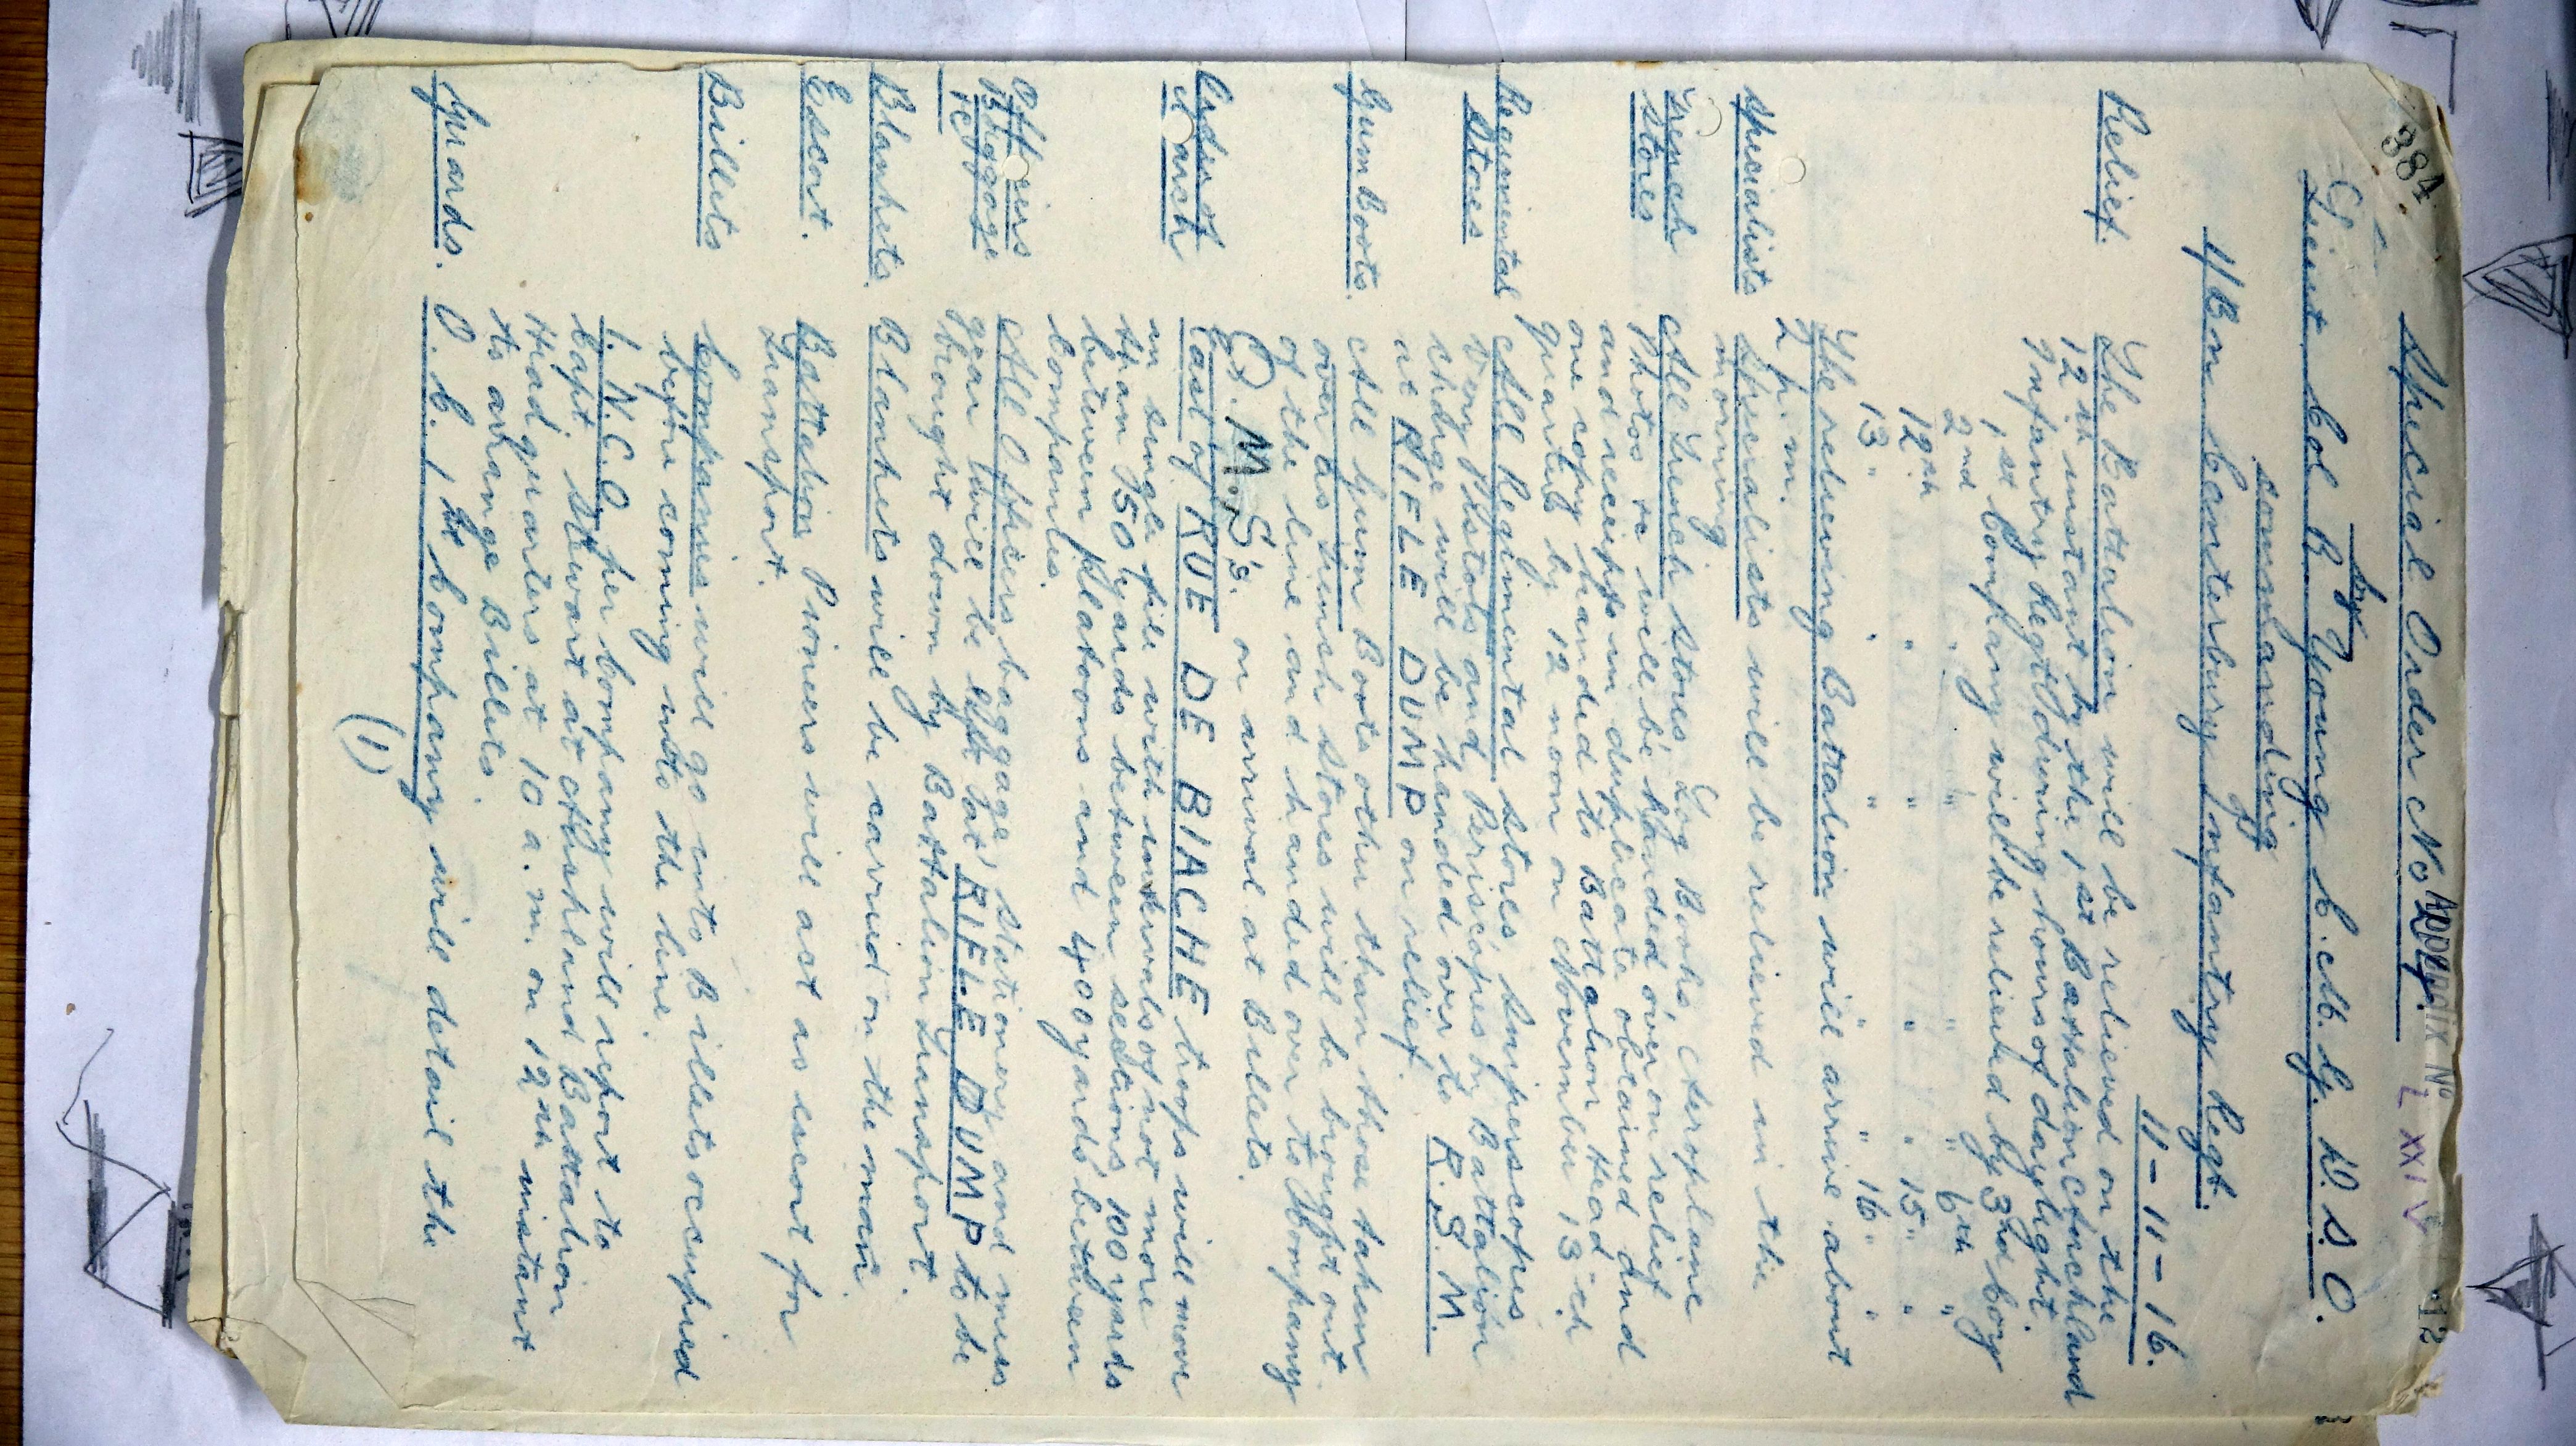 384
APPENDIX No LXXIV
12
Special Order No
by
Lieut Col R Young C.M.G. D.S.O.
commanding
1/Bn Canterbury Infantry Regt.
11-11-16.
Relief. The Battalion will be relieved on the
12th instant by the 1st Battalion Auckland
Infantry Regt during hours of daylight.
1st Company will be relieved by 3rd Coy
2nd " " " " 6th "
12th " " " " 15 "
13 " " " " " 16 "
The relieving Battalion will arrive about
2 p.m.
Specialists Specialists will be relieved in the
morning.
Trench Stores All Trench stores, Log Books, Aeroplane
Photos &c will be handed over on relief
and receipts in duplicate obtained and
one copy handed to Battalion Head
quarters by 12 noon on November 13th
Regimental Stores All Regimental stores, Sniperscopes
Very Pistols and Periscopes by Battalion
charge will be handed over to R.S.M.
at RIFLE DUMP on relief.
Gum Boots. All Gum Boots other than those taken
over as trench stores will be brought out
of the line and handed over to Company
Q.M.S's. on arrival at Billets.
Order of March East of RUE DE BIACHE troops will move
in single file with intervals of not more
than 50 yards between sections 100 yards
between platoons and 400 yards between
Companies.
Officers Baggage &c All Officers baggage, stationery and mess
gear will be left at RIFLE DUMP to be
brought down by Battalion Transport.
Blankets. Blankets will be carried on the man.
Escort. Battalion Pioneers will act as escort for
Transport.
Billets Companies will go into Billets occupied
before coming into the line.
1. N.C.O per Company will report to
Capt. Stewart at Auckland Battalion
Head quarters at 10 a.m. on 12th instant
to arrange Billets.
Guards. O.C. 1st Company will detail the
(1)